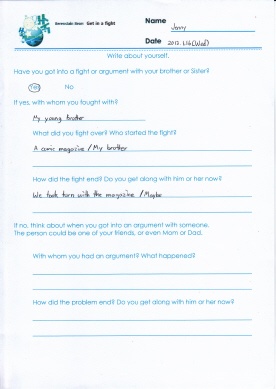 Berenstain Bears Get in a fight
Name Jenny
Date 2013. 1.16(Wed)
Write about yourself.
Have you got into a fight or argument with your brother or Sister?
Yes No
If yes, with whom you fought with?
My young brother
What did you fight over? Who started the fight?
A comic magazine / My brother
How did the fight end? Do you get along with him or her now?
We took turn with the magazine / Maybe
If no, think about when you got into an argument with someone.
The person could be one of your friends, or even Mom or Dad.
With whom you had an argument? What happened?
How did the problem end? Do you get along with him or her now?